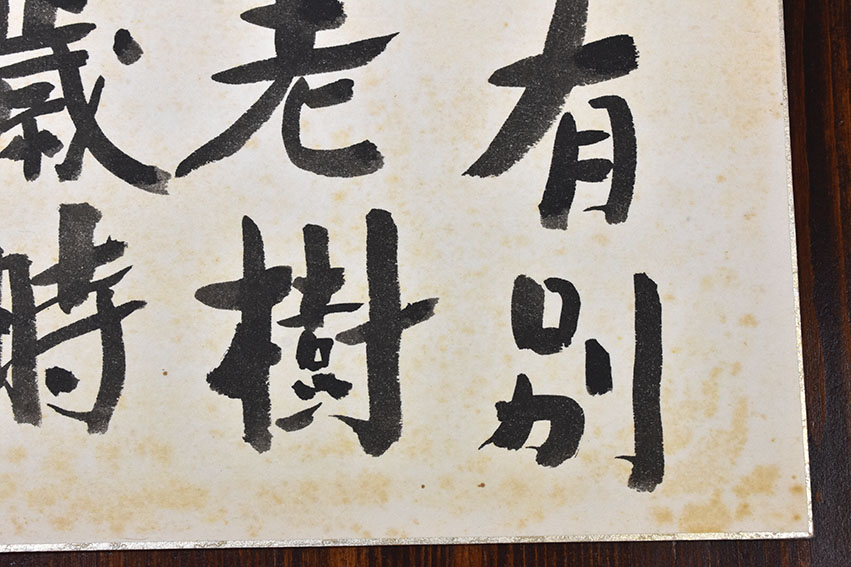 有別
老樹
歳時